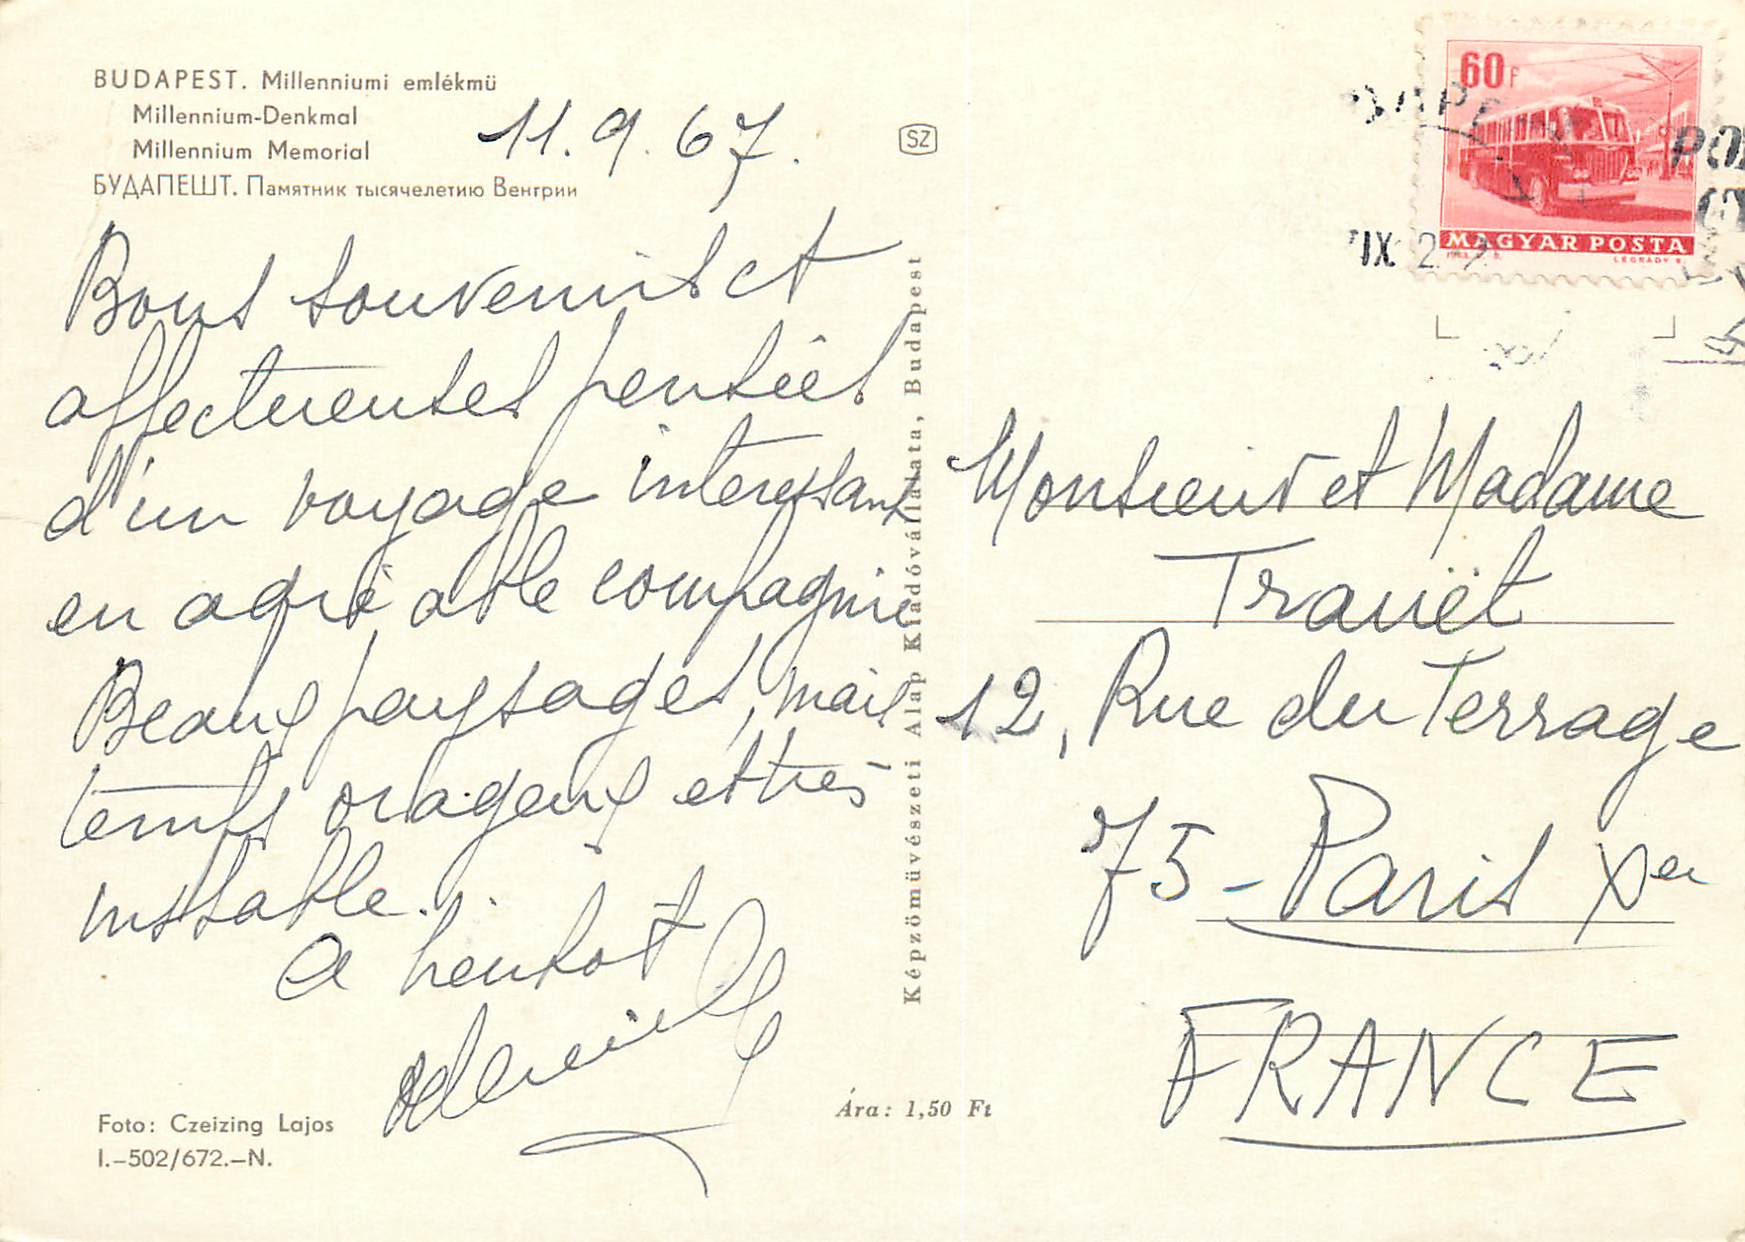 BUDAPEST. Millenniumi emlékmű
Millennium-Denkmal
Millennium Memorial
БУДАПЕШТ. Памятник тысячелетию Венгрии
11.9.67.
Bons souvenirs et
affectueuses pensées
d'un voyage interessant
en agréable compagnie
Beaux paysages, mais
temps orageux et très
instable.
A bientot
Foto: Czeizing Lajos
I.-502/672.-N.
SZ
Képzőművészeti Alap Kiadóvállalata, Budapest
Ára: 1,50 Ft
60F
MAGYAR POSTA
LÉGRÁDY S.
IX 2
Monsieur et Madame
Trauët
12, Rue du Terrage
75 - Paris Xer
FRANCE